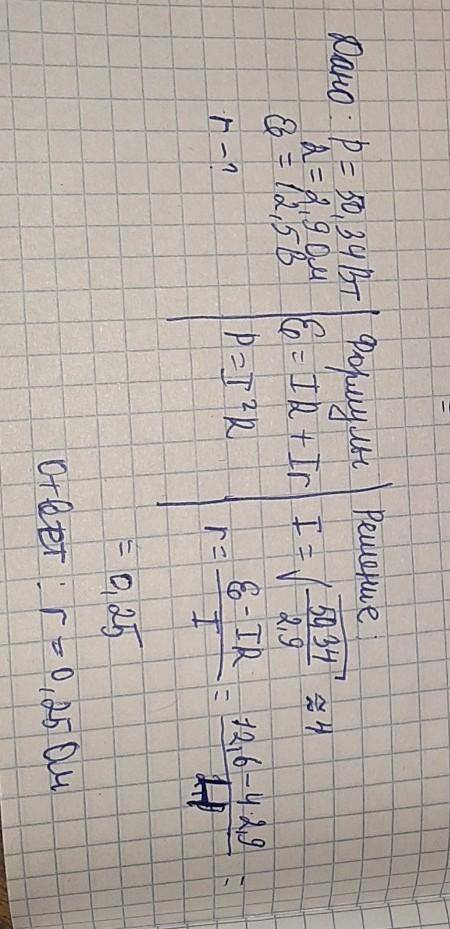 Дано: P = 50,34 Вт
R = 2,9 Ом
Ɛ = 12,5 В
r - ?
Формулы
Ɛ = IR + Ir
P = I²R
Решение:
I = √(50,34 / 2,9) ≈ 4
r = (Ɛ - IR) / I = (12,6 - 4·2,9) / 4 =
= 0,25
Ответ: r = 0,25 Ом